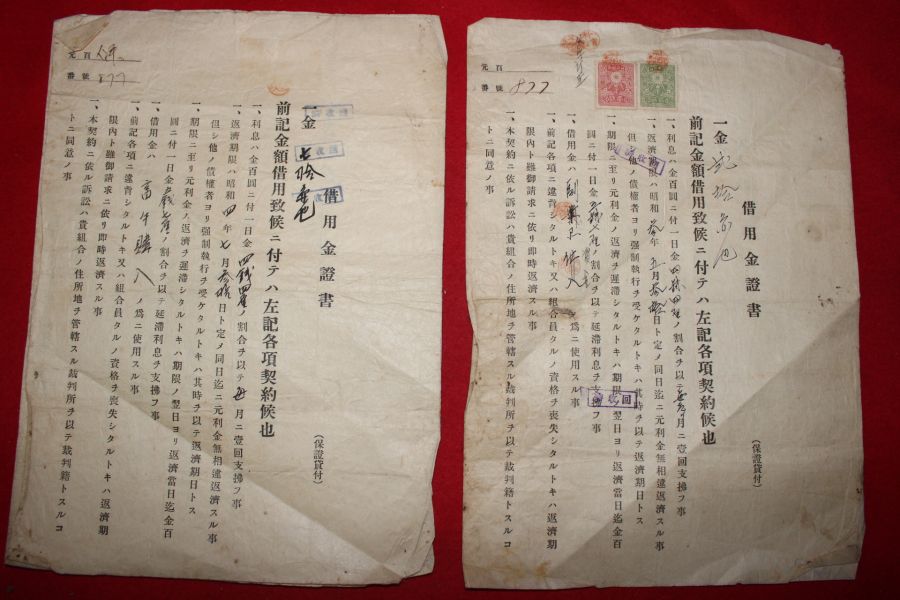 借用金證書
(保證貸付)
一金
前記金額借用致候ニ付テハ左記各項契約候也
一、利息ハ金百圓ニ付一日金四錢四厘ノ割合ヲ以テ月ニ壹回支拂フ事
一、返濟期限ハ昭和年五月日ト定メ同日迄ニ元利金無相違返濟スル事
但シ他ノ債權者ヨリ强制執行ヲ受ケタルトキハ其時ヲ以テ返濟期日トス
一、期限ニ至リ元利金ノ返濟ヲ遲滯シタルトキハ期限ノ翌日ヨリ返濟當日迄金百
圓ニ付一日金ノ割合ヲ以テ延滯利息ヲ支拂フ事
一、借用金ハ ノ爲ニ使用スル事
一、前記各項ニ違背シタルトキ又ハ組合員タルノ資格ヲ喪失シタルトキハ返濟期
限內ト雖御請求ニ依リ卽時返濟スル事
一、本契約ニ依ル訴訟ハ貴組合ノ住所地ヲ管轄スル裁判所ヲ以テ裁判籍トスルコ
トニ同意ノ事
元百
番號 877
回收濟
借用金證書
(保證貸付)
一金 七拾
前記金額借用致候ニ付テハ左記各項契約候也
一、利息ハ金百圓ニ付一日金四錢四厘ノ割合ヲ以テ每月ニ壹回支拂フ事
一、返濟期限ハ昭和四年七月參拾日ト定メ同日迄ニ元利金無相違返濟スル事
但シ他ノ債權者ヨリ强制執行ヲ受ケタルトキハ其時ヲ以テ返濟期日トス
一、期限ニ至リ元利金ノ返濟ヲ遲滯シタルトキハ期限ノ翌日ヨリ返濟當日迄金百
圓ニ付一日金ノ割合ヲ以テ延滯利息ヲ支拂フ事
一、借用金ハ 購入 ノ爲ニ使用スル事
一、前記各項ニ違背シタルトキ又ハ組合員タルノ資格ヲ喪失シタルトキハ返濟期
限內ト雖御請求ニ依リ卽時返濟スル事
一、本契約ニ依ル訴訟ハ貴組合ノ住所地ヲ管轄スル裁判所ヲ以テ裁判籍トスルコ
トニ同意ノ事
元百
番號 877